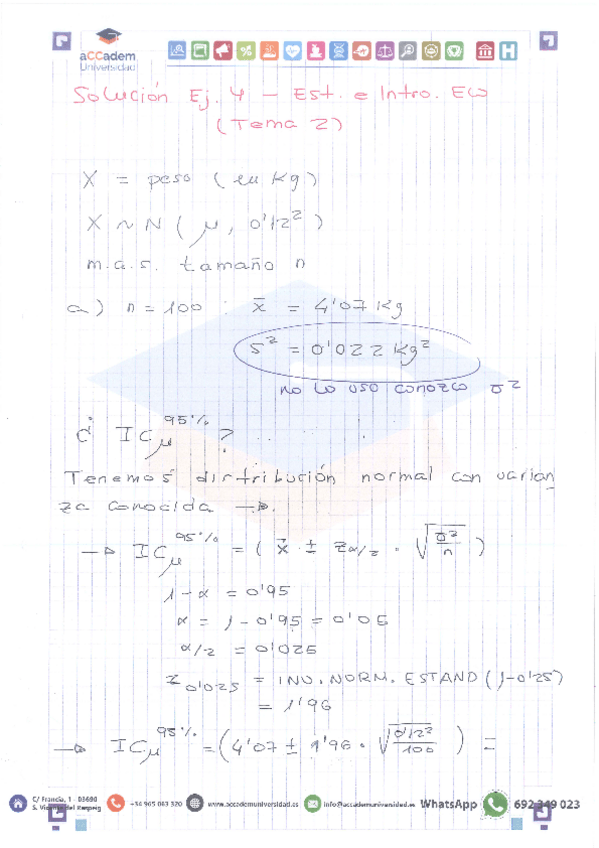 aCCadem
Universidad
H
Solución Ej. 4 – Est. e Intro. Ew
(Tema 2)
X = peso (en Kg)
X ~ N ( μ, 0'12² )
m.a.s. tamaño n
a) n = 100 : x̄ = 4'07 Kg
S² = 0'022 Kg²
no lo uso conozco σ²
¿ IC_μ^95% ?
Tenemos distribución normal con varian
za conocida →.
→ IC_μ^95% = ( x̄ ± z_α/2 · √(σ²/n) )
1 - α = 0'95
α = 1 - 0'95 = 0'05
α/2 = 0'025
z_0'025 = INV. NORM. ESTAND (1-0'25)
= 1'96
→ IC_μ^95% = (4'07 ± 1'96 · √(0'12²/100) ) =
C/ Francia, 1 - 03690
S. Vicente del Raspeig
+34 965 063 320
www.accademuniversidad.es
info@accademuniversidad.es
WhatsApp
692 349 023